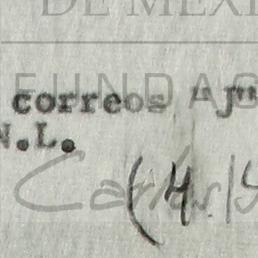 DE MÉXI
FUNDAC
correos "J"
N.L.
Carlos S
(4